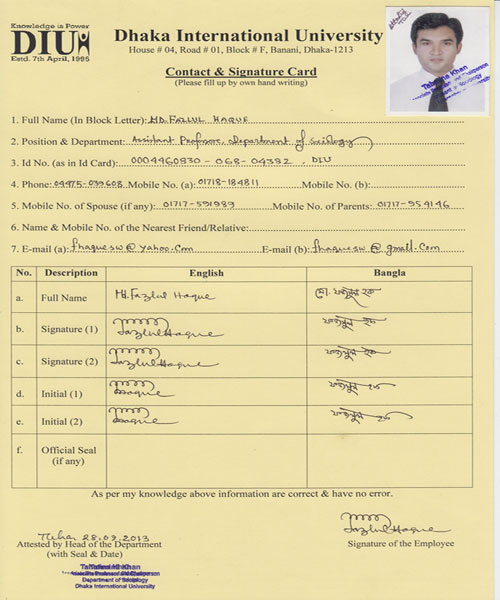 Knowledge is Power
DIU
Estd. 7th April, 1995
Dhaka International University
House # 04, Road # 01, Block # F, Banani, Dhaka-1213
Contact & Signature Card
(Please fill up by own hand writing)
Khan
1. Full Name (In Block Letter): MD. FAZLUL HAQUE
2. Position & Department: Assistant Professor, Department of Sociology
3. Id No. (as in Id Card): 0004460830-068-04382, DIU
4. Phone: 04475-039608 Mobile No. (a): 01718-184811 Mobile No. (b):
5. Mobile No. of Spouse (if any): 01717-591989 Mobile No. of Parents: 01717-959146
6. Name & Mobile No. of the Nearest Friend/Relative:
7. E-mail (a): fhaquesw@yahoo.Com E-mail (b): fhaquesw@gmail.Com
No. Description English Bangla
a. Full Name Md. Fazlul Haque মো. ফজলুল হক
b. Signature (1) Fazlul Haque ফজলুল হক
c. Signature (2) Fazlul Haque ফজলুল হক
d. Initial (1) Haque ফজলুল হক
e. Initial (2) Haque ফজলুল হক
f. Official Seal
(if any)
As per my knowledge above information are correct & have no error.
28.09.2013
Attested by Head of the Department
(with Seal & Date)
Fazlul Haque
Signature of the Employee
Khan
Department of Sociology
Dhaka International University